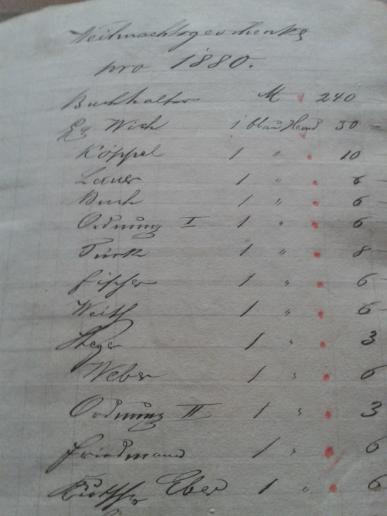 Weihnachtsgeschenke
pro 1880.
Buchhalter M 240
Wich 1 blau Hemd 30 –
Köppel 1 " 10
Lauer 1 " 6
Buch 1 " 6
Ordnung I 1 " 6
Türk 1 " 8
Fischer 1 " 6
Weith 1 " 6
1 " 3
Weber 1 " 6
Ordnung II 1 " 3
Friedmann 1 " 6
Eber 1 " 6